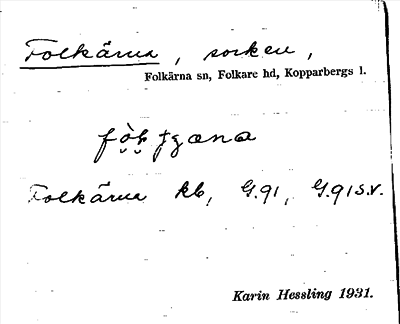 Folkärna, socken,
Folkärna sn, Folkare hd, Kopparbergs l.
Folkärna kb, G.91, G.91 s.v.
Karin Hessling 1931.